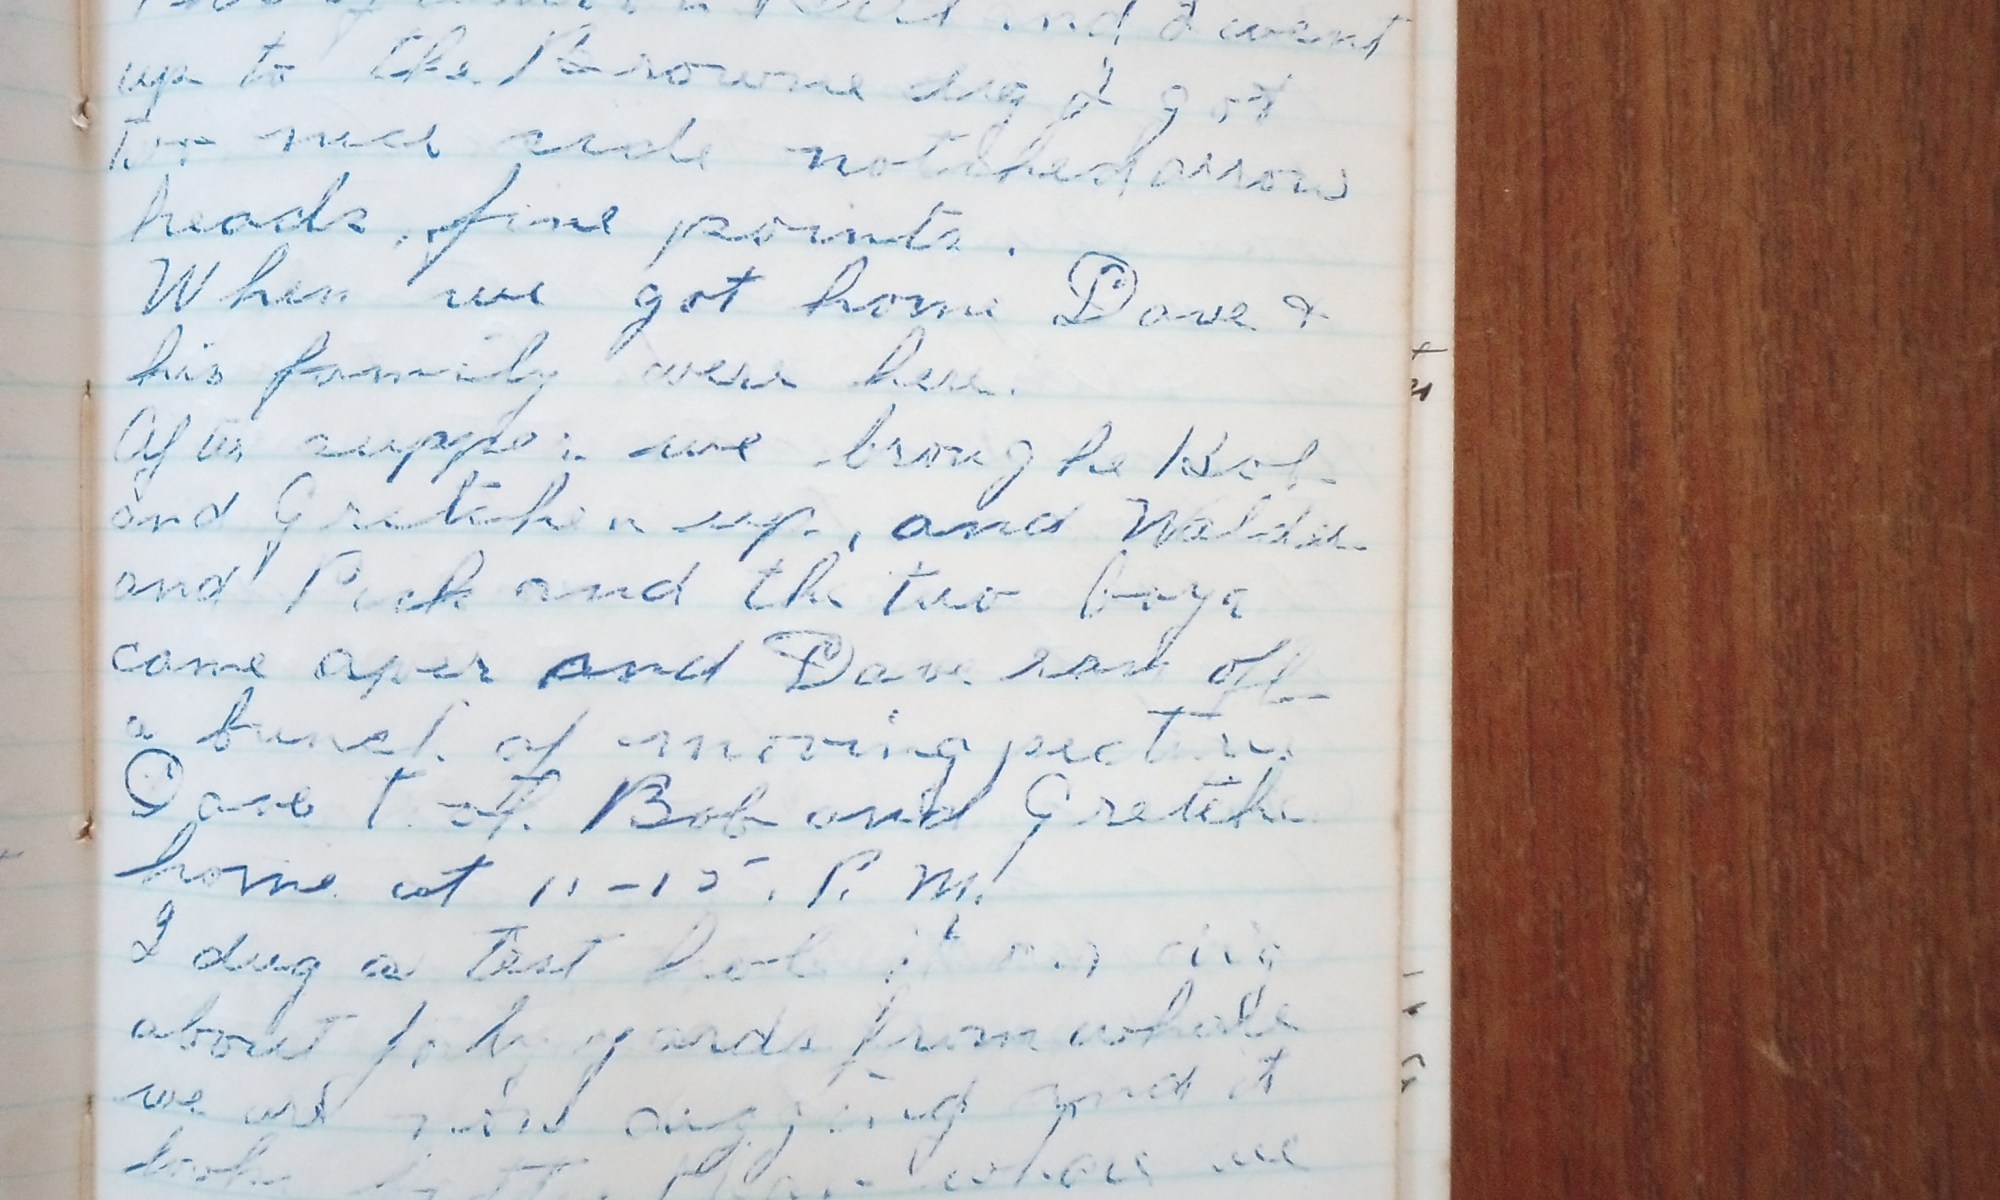 and I went
up to the Browne dig & got
two nice side notched arrow
heads, fine points.
When we got home Dave &
his family were here.
After supper we broughe Bob
and Gretchen up, and Walder
and Peck and the two boys
came over and Dave ran off
a bunch of moving pictures
Dave took Bob and Gretche
home at 11-15. P. M.
I dug a test hole in our dig
about forty yards from where
we are now digging and it
looks better than where we